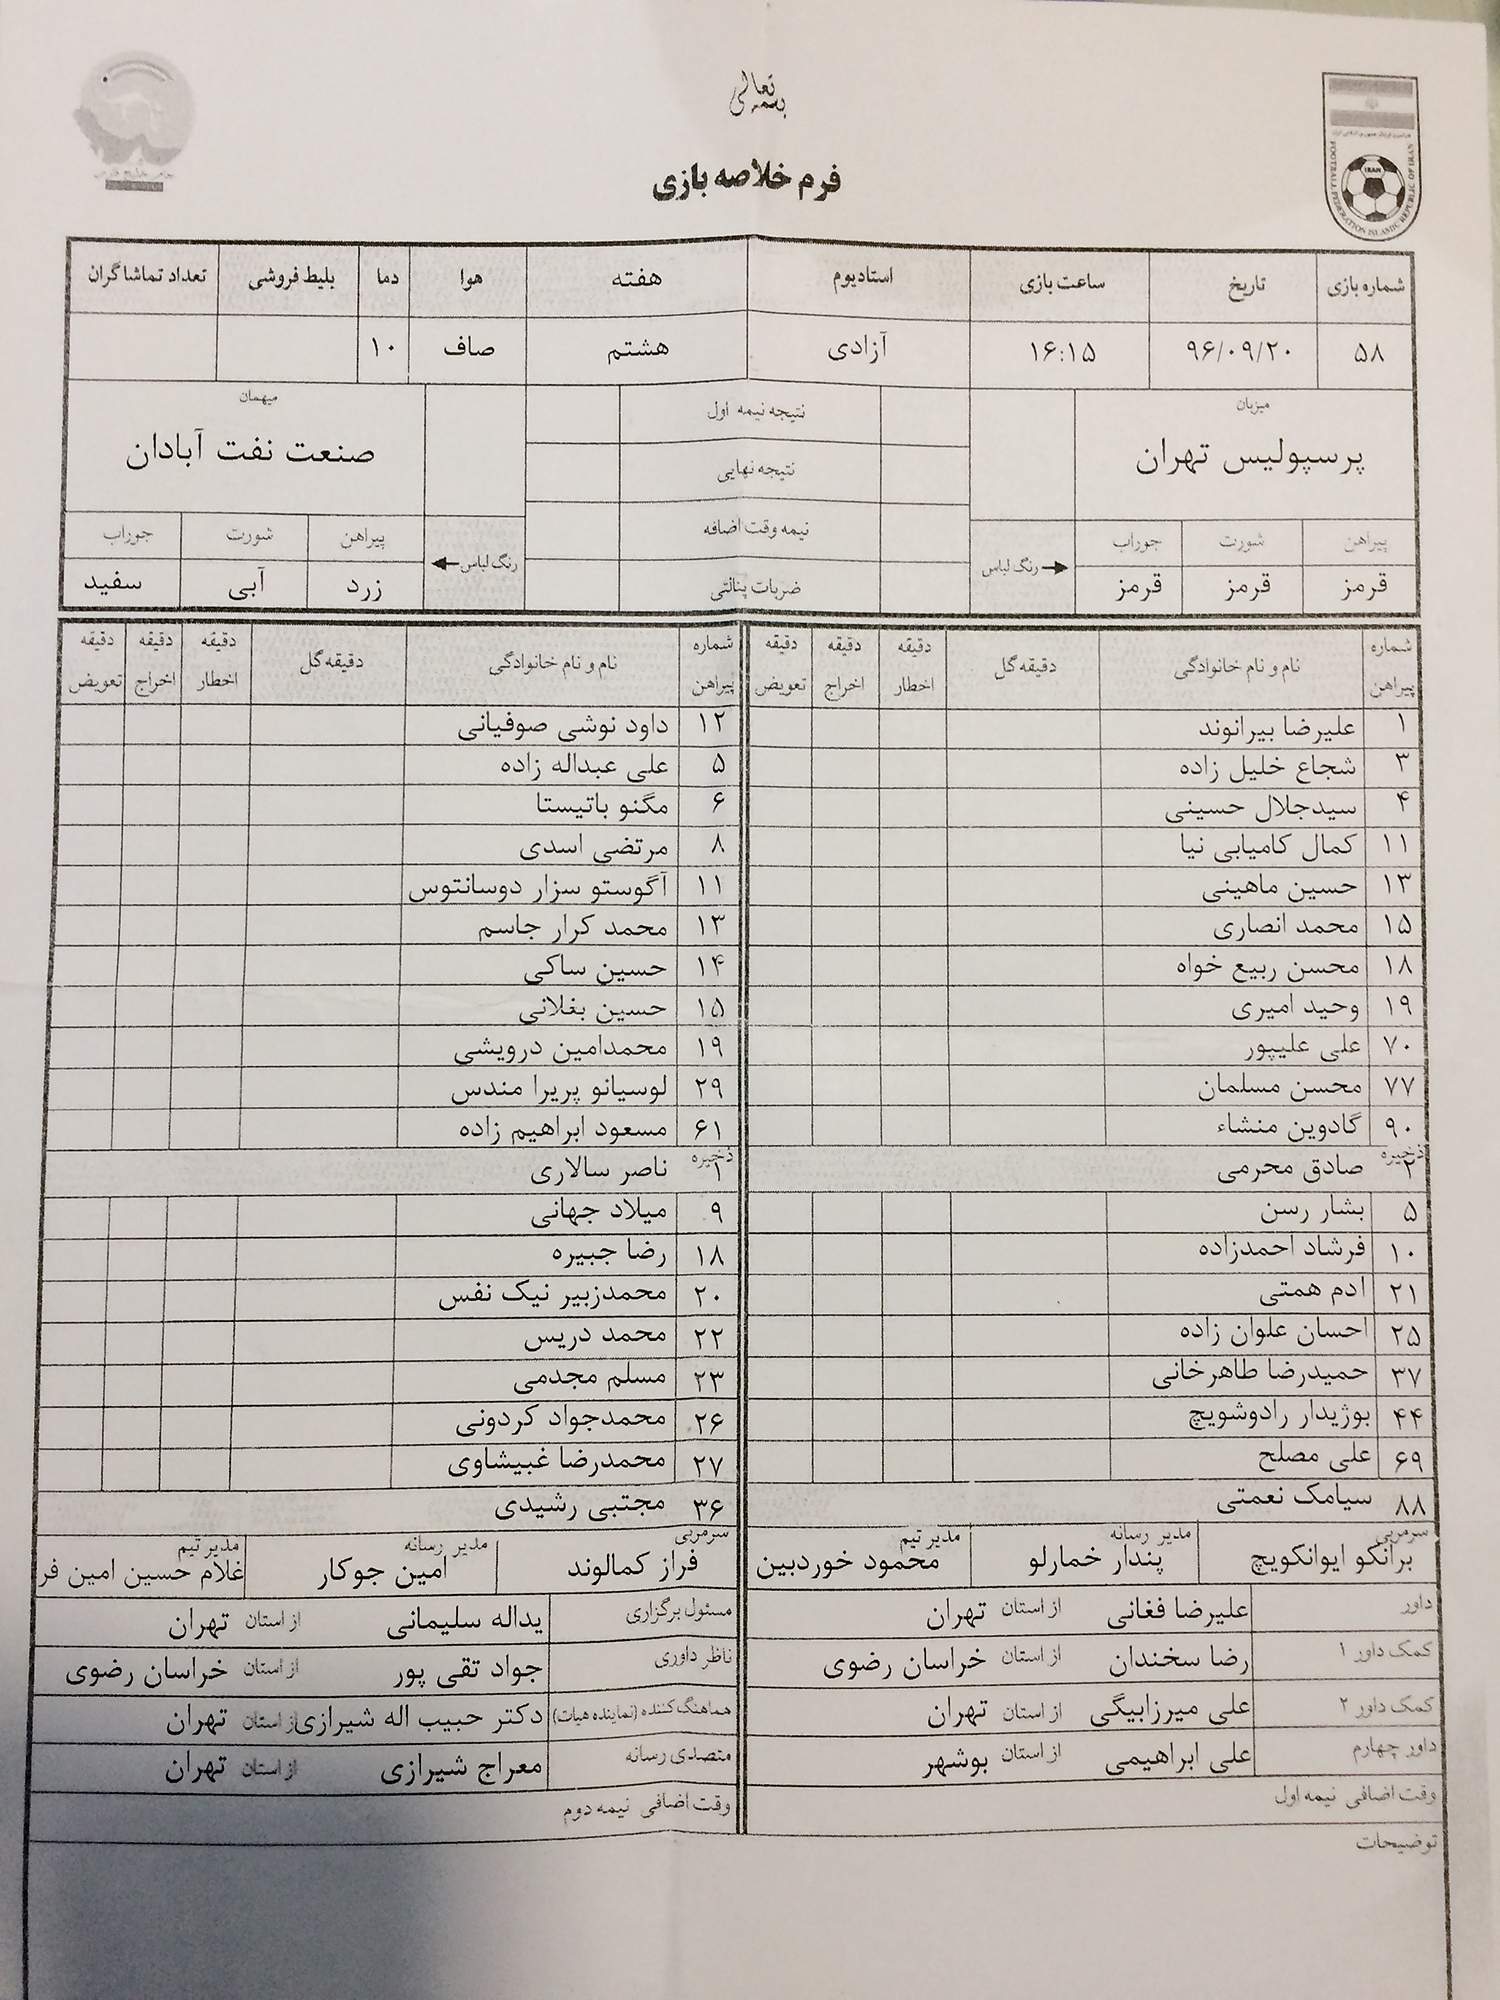 بسمه تعالی
فرم خلاصه بازی
FOOTBALL FEDERATION ISLAMIC REPUBLIC OF IRAN
IRAN
شماره بازی تاریخ ساعت بازی استادیوم هفته هوا دما بلیط فروشی تعداد تماشاگران
۵۸ ۹۶/۰۹/۲۰ ۱۶:۱۵ آزادی هشتم صاف ۱۰
میزبان نتیجه نیمه اول میهمان
پرسپولیس تهران نتیجه نهایی صنعت نفت آبادان
نیمه وقت اضافه
پیراهن شورت جوراب رنگ لباس ضربات پنالتی رنگ لباس پیراهن شورت جوراب
قرمز قرمز قرمز زرد آبی سفید
شماره پیراهن نام و نام خانوادگی دقیقه گل دقیقه اخطار دقیقه اخراج دقیقه تعویض شماره پیراهن نام و نام خانوادگی دقیقه گل دقیقه اخطار دقیقه اخراج دقیقه تعویض
۱ علیرضا بیرانوند ۱۲ داود نوشی صوفیانی
۳ شجاع خلیل زاده ۵ علی عبداله زاده
۴ سیدجلال حسینی ۶ مگنو باتیستا
۱۱ کمال کامیابی نیا ۸ مرتضی اسدی
۱۳ حسین ماهینی ۱۱ آگوستو سزار دوسانتوس
۱۵ محمد انصاری ۱۳ محمد کرار جاسم
۱۸ محسن ربیع خواه ۱۴ حسین ساکی
۱۹ وحید امیری ۱۵ حسین بغلانی
۷۰ علی علیپور ۱۹ محمدامین درویشی
۷۷ محسن مسلمان ۲۹ لوسیانو پریرا مندس
۹۰ گادوین منشاء ۶۱ مسعود ابراهیم زاده
ذخیره ۲ صادق محرمی ذخیره ۱ ناصر سالاری
۵ بشار رسن ۹ میلاد جهانی
۱۰ فرشاد احمدزاده ۱۸ رضا جبیره
۲۱ ادم همتی ۲۰ محمدزبیر نیک نفس
۲۵ احسان علوان زاده ۲۲ محمد دریس
۳۷ حمیدرضا طاهرخانی ۲۳ مسلم مجدمی
۴۴ بوژیدار رادوشویچ ۲۶ محمدجواد کردونی
۶۹ علی مصلح ۲۷ محمدرضا غبیشاوی
۸۸ سیامک نعمتی ۳۶ مجتبی رشیدی
سرمربی مدیر رسانه مدیر تیم سرمربی مدیر رسانه مدیر تیم
برانکو ایوانکویچ پندار خمارلو محمود خوردبین فراز کمالوند امین جوکار غلام حسین امین فر
داور علیرضا فغانی از استان تهران مسئول برگزاری یداله سلیمانی از استان تهران
کمک داور ۱ رضا سخندان از استان خراسان رضوی ناظر داوری جواد تقی پور از استان خراسان رضوی
کمک داور ۲ علی میرزابیگی از استان تهران هماهنگ کننده (نماینده هیات) دکتر حبیب اله شیرازی از استان تهران
داور چهارم علی ابراهیمی از استان بوشهر متصدی رسانه معراج شیرازی از استان تهران
وقت اضافی نیمه اول وقت اضافی نیمه دوم
توضیحات